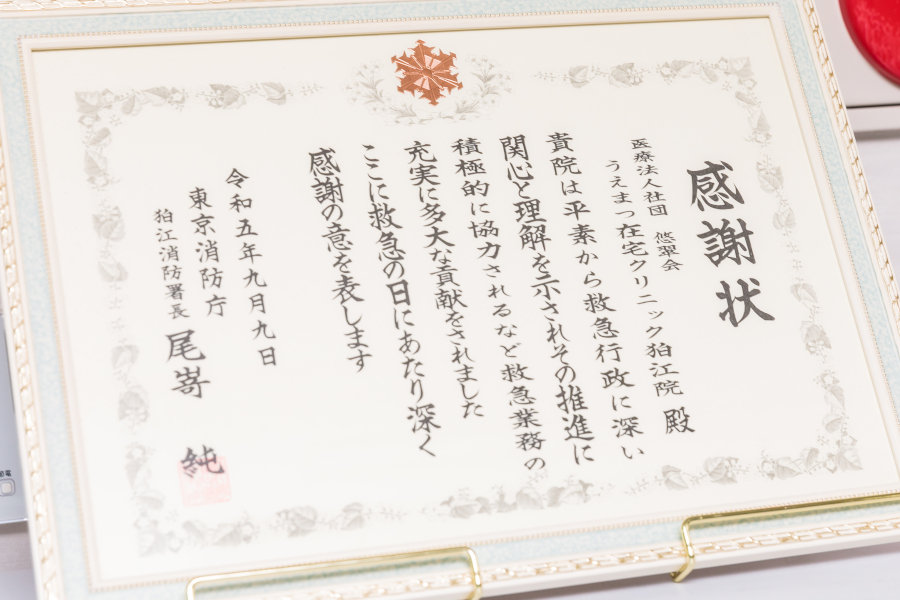 感謝状
医療法人社団 悠翠会
うえまつ在宅クリニック狛江院 殿
貴院は平素から救急行政に深い
関心と理解を示されその推進に
積極的に協力されるなど救急業務の
充実に多大な貢献をされました
ここに救急の日にあたり深く
感謝の意を表します
令和五年九月九日
東京消防庁
狛江消防署長 尾嵜 純